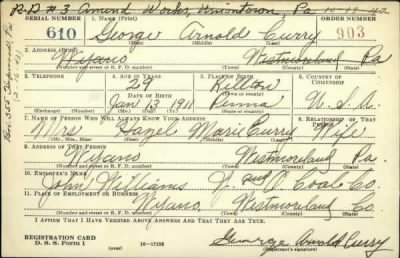 R.D #3 Amend Works, Uniontown, Pa 10-19-42
SERIAL NUMBER 1. NAME (Print) ORDER NUMBER
610 George Arnold Curry 903
(First) (Middle) (Last)
2. ADDRESS (Print)
Wyano Westmoreland Pa
(Number and street or R. F. D. number) (Town) (County) (State)
3. TELEPHONE 4. AGE IN YEARS 5. PLACE OF BIRTH 6. COUNTRY OF CITIZENSHIP
29
DATE OF BIRTH (Town or county)
Jan 13 1911 Penna U.S.A.
(Exchange) (Number) (Mo.) (Day) (Yr.) (State or country)
7. NAME OF PERSON WHO WILL ALWAYS KNOW YOUR ADDRESS 8. RELATIONSHIP OF THAT PERSON
Mrs Hazel Marie Curry Wife
(Mr., Mrs., Miss) (First) (Middle) (Last)
9. ADDRESS OF THAT PERSON
Wyano Westmoreland Pa.
(Number and street or R. F. D. number) (Town) (County) (State)
10. EMPLOYER'S NAME
John Williams Coal Co
11. PLACE OF EMPLOYMENT OR BUSINESS
Wyano, Westmoreland Co.
(Number and street or R. F. D. number) (Town) (County) (State)
I AFFIRM THAT I HAVE VERIFIED ABOVE ANSWERS AND THAT THEY ARE TRUE.
REGISTRATION CARD
D. S. S. Form 1 (over) 16-17105 George Arnold Curry